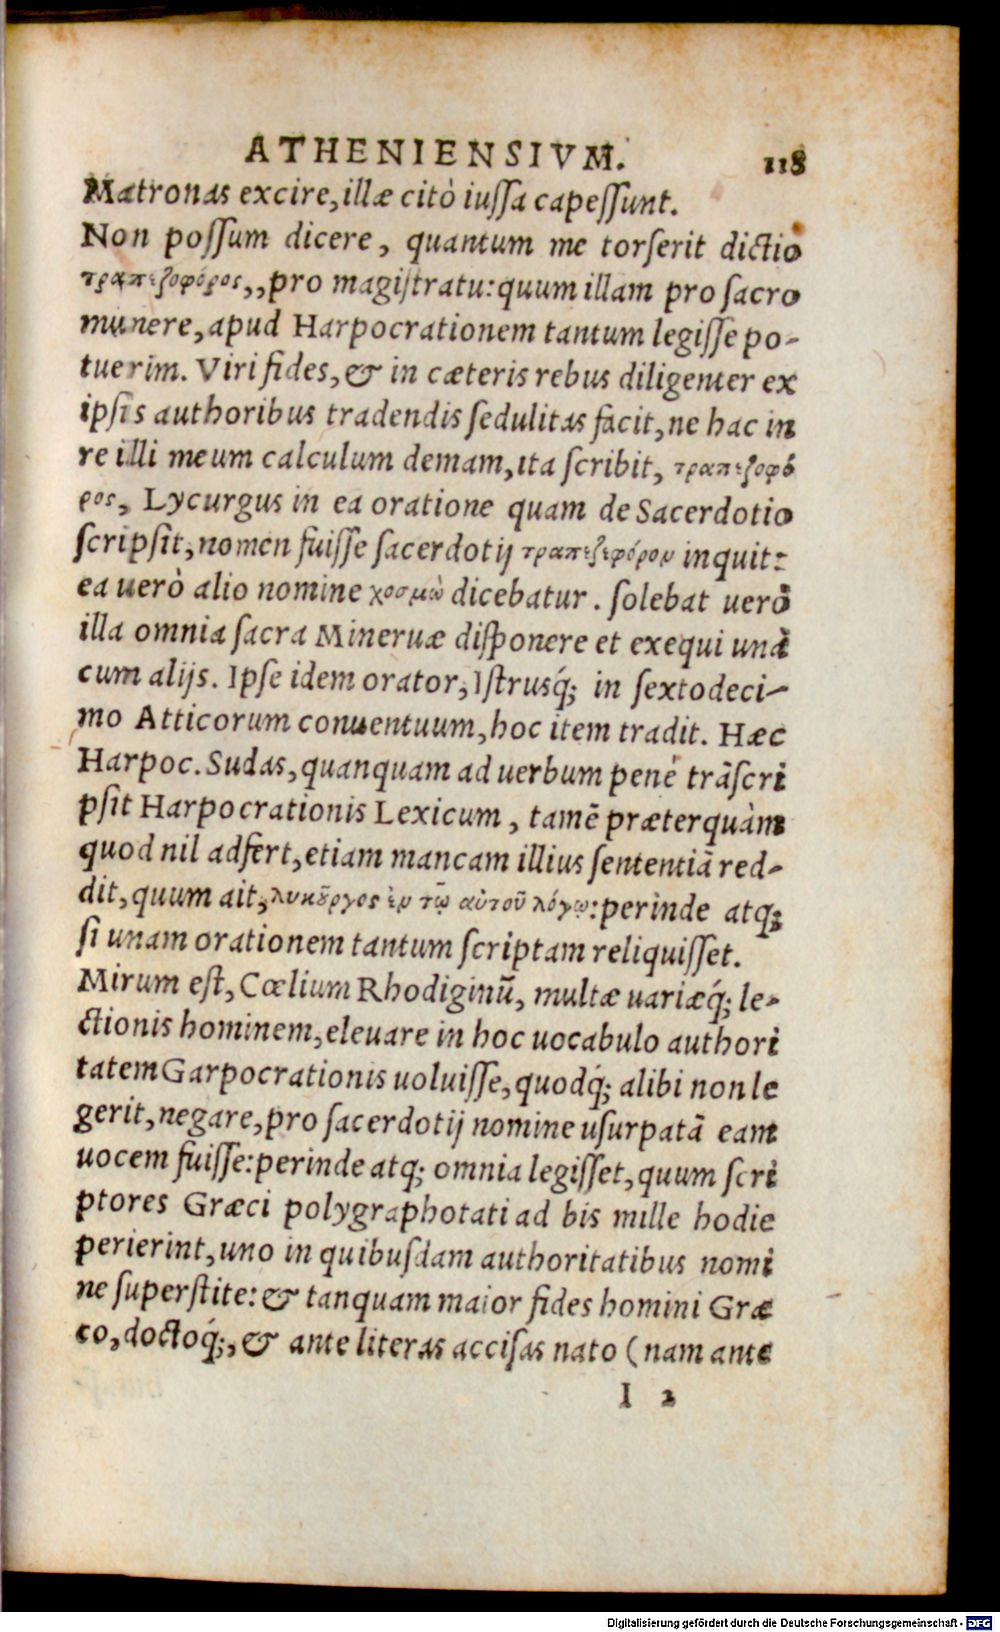 ATHENIENSIVM. 118
Matronas excire, illæ citò iussa capessunt.
Non possum dicere, quantum me torserit dictio
τραπεζοφόρος,, pro magistratu: quum illam pro sacro
munere, apud Harpocrationem tantum legisse po-
tuerim. Viri fides, & in cæteris rebus diligenter ex
ipsis authoribus tradendis sedulitas facit, ne hac in
re illi meum calculum demam, ita scribit, τραπεζοφό
ρος, Lycurgus in ea oratione quam de Sacerdotio
scripsit, nomen fuisse sacerdotij τραπεζεφόρου inquit:
ea uerò alio nomine χοσμὼ dicebatur. solebat uerò
illa omnia sacra Mineruæ disponere et exequi unà
cum alijs. Ipse idem orator, Istrusq́; in sextodeci-
mo Atticorum conuentuum, hoc item tradit. Hæc
Harpoc. Sudas, quanquam ad uerbum penè trãscri
psit Harpocrationis Lexicum, tamẽ præterquàm
quod nil adfert, etiam mancam illius sententiã red-
dit, quum ait, λυκοῦργος ἐν τῷ αὐτοῦ λόγῳ: perinde atq;
si unam orationem tantum scriptam reliquisset.
Mirum est, Cœlium Rhodiginũ, multæ uariæq́; le-
ctionis hominem, eleuare in hoc uocabulo authori
tatem Garpocrationis uoluisse, quodq́; alibi non le
gerit, negare, pro sacerdotij nomine usurpatã eam
uocem fuisse: perinde atq; omnia legisset, quum scri
ptores Græci polygraphotati ad bis mille hodie
perierint, uno in quibusdam authoritatibus nomi
ne superstite: & tanquam maior fides homini Græ
co, doctoq́;, & ante literas accisas nato (nam ante
I 2
Digitalisierung gefördert durch die Deutsche Forschungsgemeinschaft - DFG